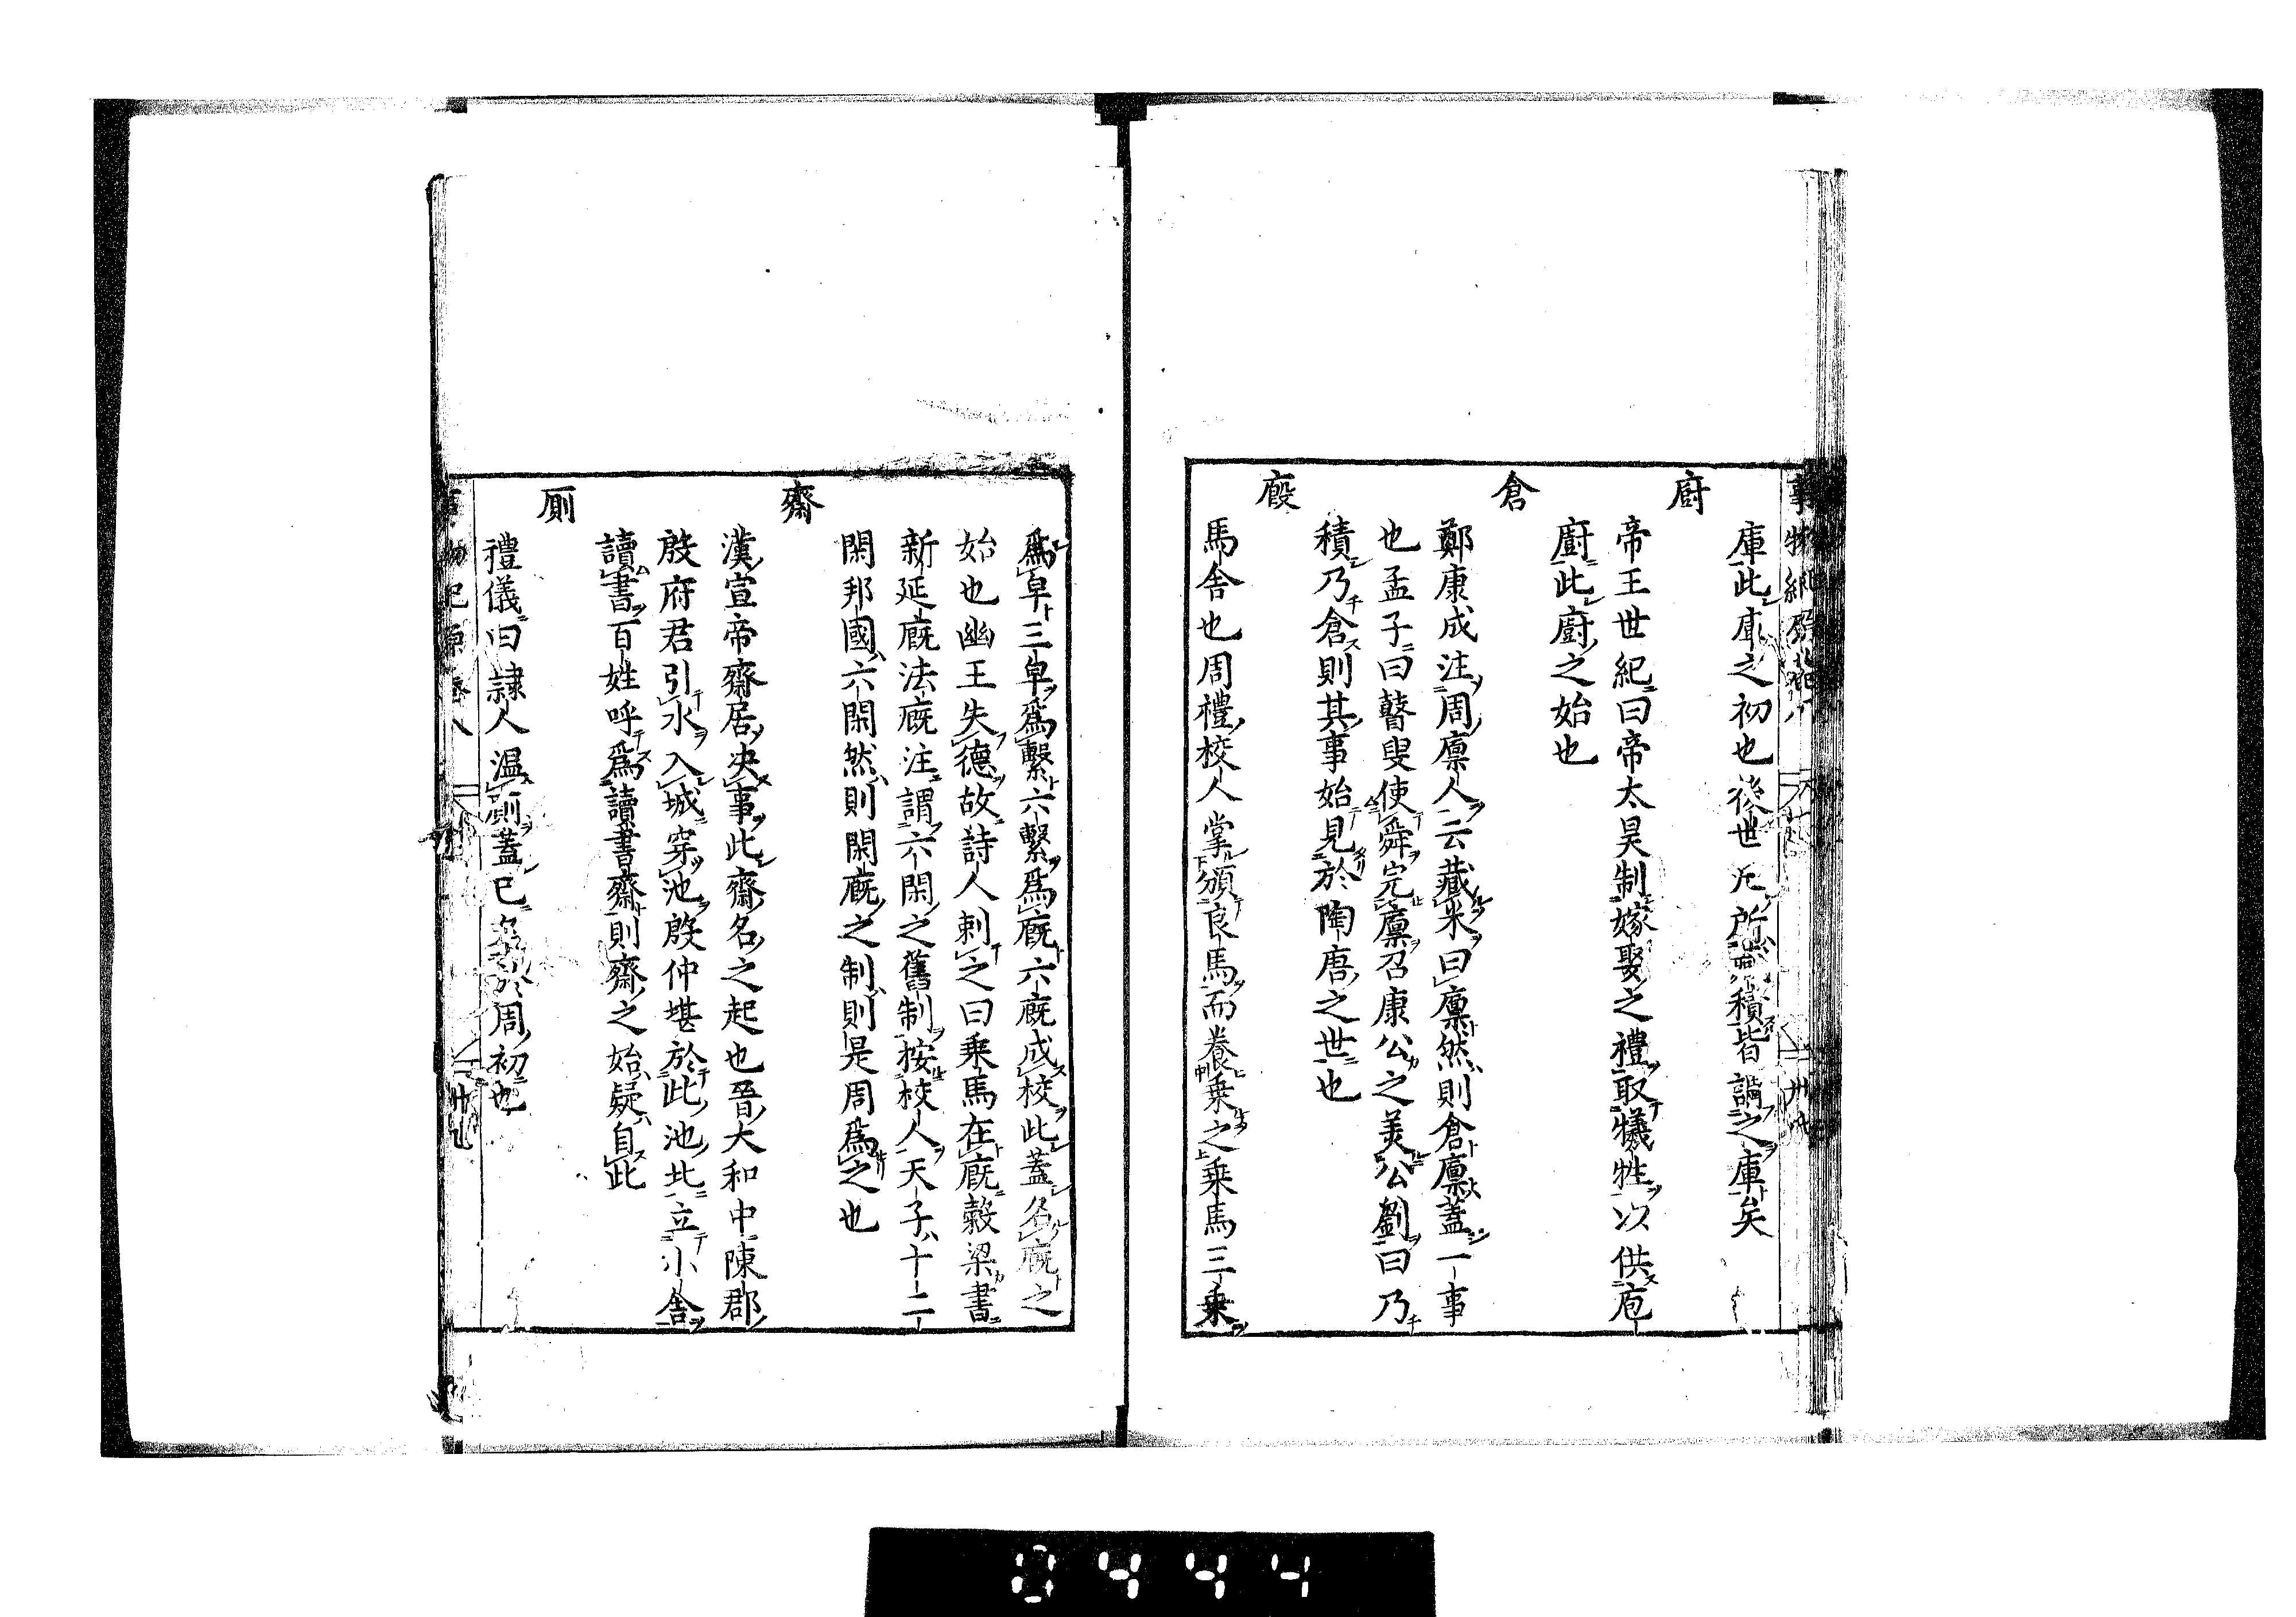 庫此庫之初也後世凡所積皆謂之庫矣
廚
帝王世紀曰帝太昊制嫁娶之禮取犧牲以供庖
廚此廚之始也
倉
鄭康成注周廩人云藏米曰廩然則倉廩蓋一事
也孟子曰瞽叟使舜完廩召康公之美公劉曰乃
積乃倉則其事始見於陶唐之世也
廄
馬舍也周禮校人掌頒良馬而養乗之乗馬三乗
爲皁三皁爲繫六繫爲廐六廐成校此蓋名廐之
始也幽王失德故詩人刺之曰乗馬在廐穀梁書
新延廐法廐注謂六閑之舊制按校人天子十二
閑邦國六閑然則閑廐之制則是周爲之也
齋
漢宣帝齋居决事此齋名之起也晉大和中陳郡
殷府君引水入城穿池殷仲堪於此池北立小舎
讀書百姓呼爲讀書齋則齋之始疑自此
厠
禮儀曰隷人温厠蓋已名於周初也
0444